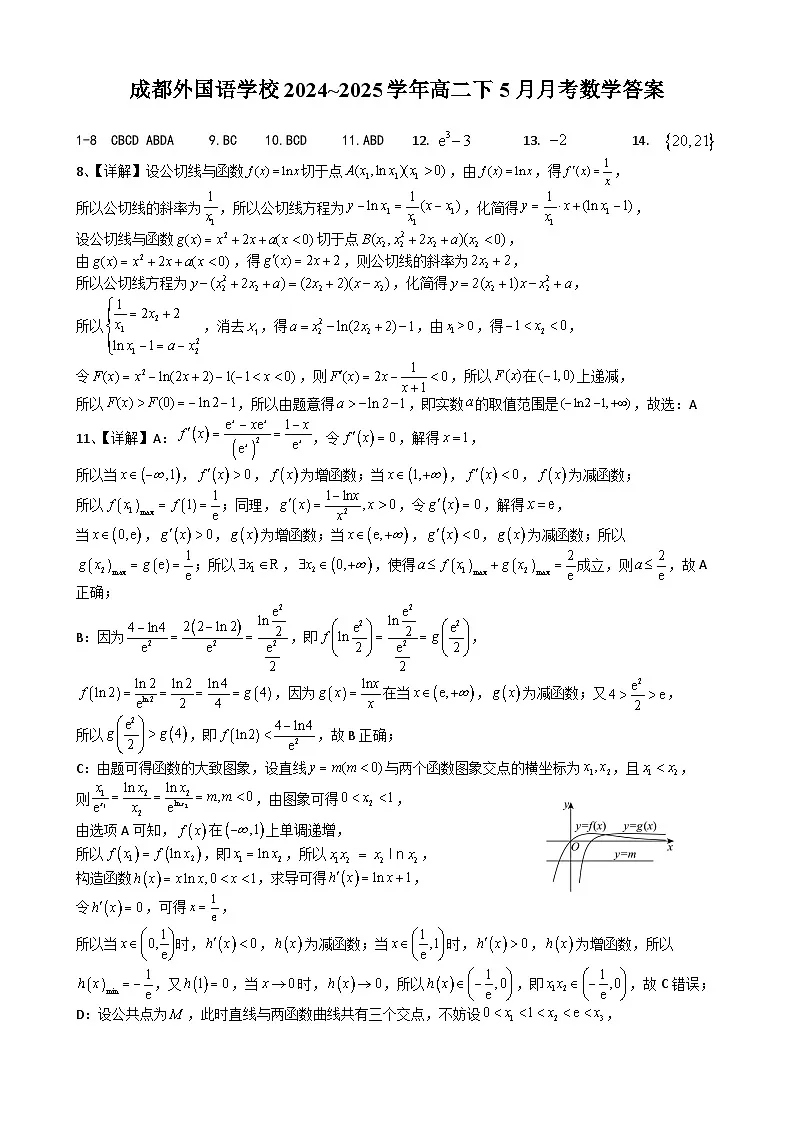 成都外国语学校2024~2025学年高二下5月月考数学答案
1-8 CBCD ABDA 9.BC 10.BCD 11.ABD 12. e³−3 13. −2 14. {20,21}
8、【详解】设公切线与函数f(x)=lnx切于点A(x₁,lnx₁)(x₁>0)，由f(x)=lnx，得f′(x)=1/x，
所以公切线的斜率为1/x₁，所以公切线方程为y−lnx₁=1/x₁(x−x₁)，化简得y=1/x₁·x+(lnx₁−1)，
设公切线与函数g(x)=x²+2x+a(x<0)切于点B(x₂,x₂²+2x₂+a)(x₂<0)，
由g(x)=x²+2x+a(x<0)，得g′(x)=2x+2，则公切线的斜率为2x₂+2，
所以公切线方程为y−(x₂²+2x₂+a)=(2x₂+2)(x−x₂)，化简得y=2(x₂+1)x−x₂²+a，
所以{1/x₁=2x₂+2, lnx₁−1=a−x₂²，消去x₁，得a=x₂²−ln(2x₂+2)−1，由x₁>0，得−1<x₂<0，
令F(x)=x²−ln(2x+2)−1(−1<x<0)，则F′(x)=2x−1/(x+1)<0，所以F(x)在(−1,0)上递减，
所以F(x)>F(0)=−ln2−1，所以由题意得a>−ln2−1，即实数a的取值范围是(−ln2−1,+∞)，故选：A
11、【详解】A：f′(x)=(eˣ−xeˣ)/(eˣ)²=(1−x)/eˣ，令f′(x)=0，解得x=1，
所以当x∈(−∞,1)，f′(x)>0，f(x)为增函数；当x∈(1,+∞)，f′(x)<0，f(x)为减函数；
所以f(x₁)max=f(1)=1/e；同理，g′(x)=(1−lnx)/x²,x>0，令g′(x)=0，解得x=e，
当x∈(0,e)，g′(x)>0，g(x)为增函数；当x∈(e,+∞)，g′(x)<0，g(x)为减函数；所以
g(x₂)max=g(e)=1/e；所以∃x₁∈R，∃x₂∈(0,+∞)，使得a≤f(x₁)max+g(x₂)max=2/e成立，则a≤2/e，故A
正确；
B：因为(4−ln4)/e²=2(2−ln2)/e²=ln(e²/2)/(e²/2)，即f(ln(e²/2))=ln(e²/2)/(e²/2)=g(e²/2)，
f(ln2)=ln2/e^(ln2)=ln2/2=ln4/4=g(4)，因为g(x)=lnx/x在当x∈(e,+∞)，g(x)为减函数；又4>e²/2>e，
所以g(e²/2)>g(4)，即f(ln2)<(4−ln4)/e²，故B正确；
C：由题可得函数的大致图象，设直线y=m(m<0)与两个函数图象交点的横坐标为x₁,x₂，且x₁<x₂，
则x₁/e^(x₁)=lnx₂/x₂=lnx₂/e^(lnx₂)=m,m<0，由图象可得0<x₂<1，
由选项A可知，f(x)在(−∞,1)上单调递增，
所以f(x₁)=f(lnx₂)，即x₁=lnx₂，所以x₁x₂=x₂lnx₂，
构造函数h(x)=xlnx,0<x<1，求导可得h′(x)=lnx+1，
令h′(x)=0，可得x=1/e，
y
y=f(x) y=g(x)
O x
y=m
所以当x∈(0,1/e)时，h′(x)<0，h(x)为减函数；当x∈(1/e,1)时，h′(x)>0，h(x)为增函数，所以
h(x)min=−1/e，又h(1)=0，当x→0时，h(x)→0，所以h(x)∈(−1/e,0)，即x₁x₂∈(−1/e,0)，故C错误；
D：设公共点为M，此时直线与两函数曲线共有三个交点，不妨设0<x₁<1<x₂<e<x₃，